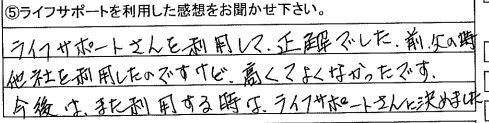 ⑤ライフサポートを利用した感想をお聞かせ下さい。
ライフサポートさんを利用して、正解でした。前、次の時
他社を利用したのですけど、高くてよくなかったです。
今後は、また利用する時は、ライフサポートさんに決めました